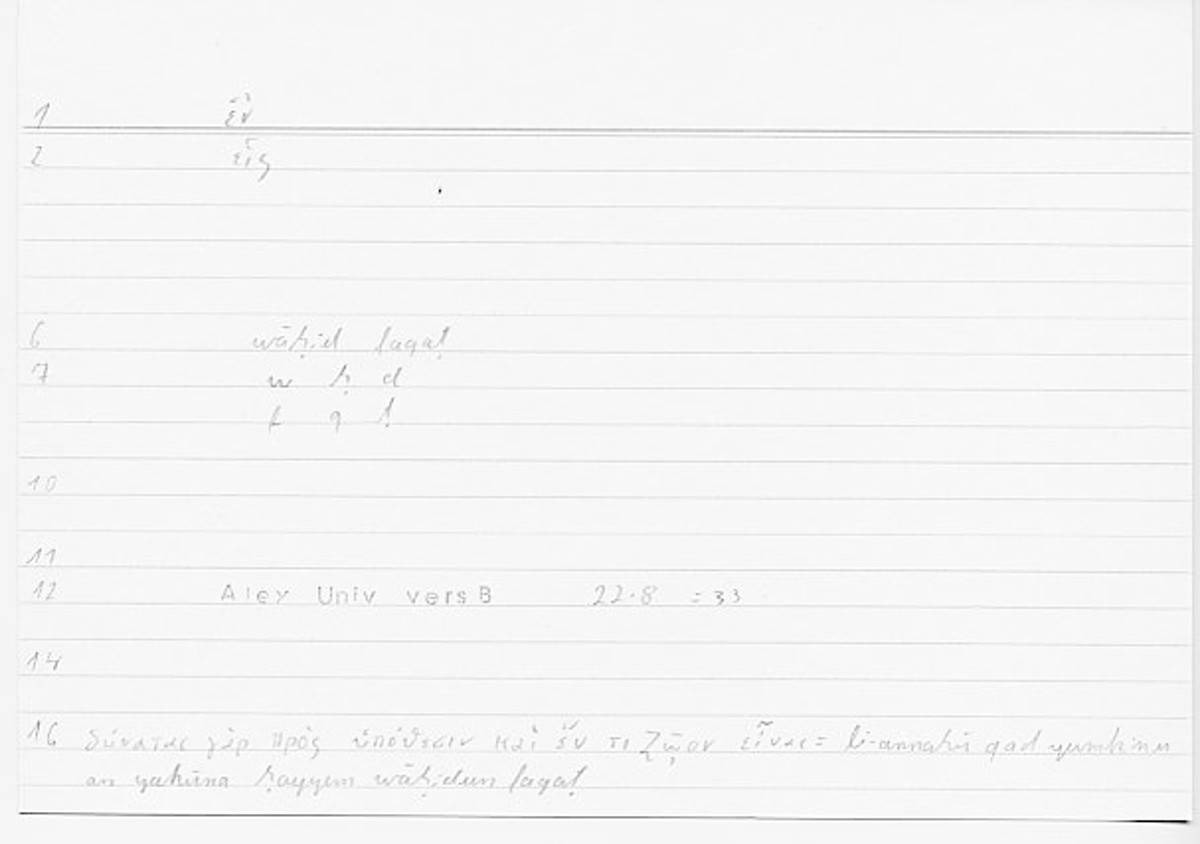 1 ἕν
2 εἷς
6 wāḥid faqaṭ
7 w ḥ d
f q ṭ
10
11
12 Alex Univ vers B 22.8 = 33
14
16 δύναται γὰρ πρὸς ὑπόθεσιν καὶ ἕν τι ζῷον εἶναι = li-annahū qad yumkinu
an yakūna ḥayyun wāḥidun faqaṭ